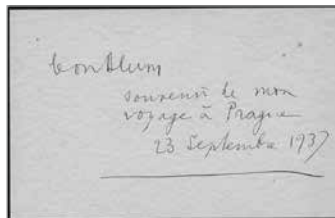 Léon Blum
souvenir de mon
voyage à Prague
23 Septembre 1937